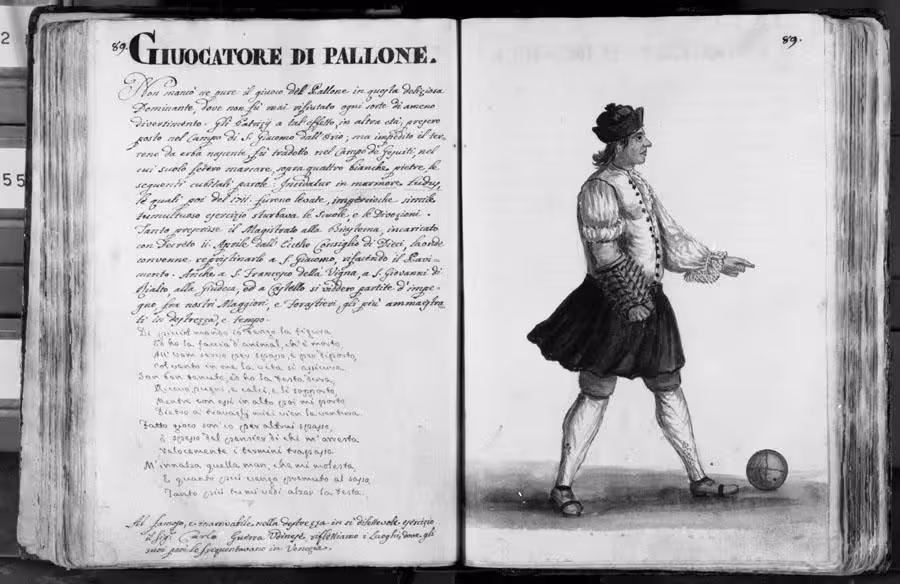 89. GIUOCATORE DI PALLONE.
Non mancò ne pure il giuoco del Pallone in questa deliziosa
Dominante, dove non fù mai rifiutato ogni sorte di ameno
divertimento. Gli Patrizj a tal' effetto, in altra età, presero
posto nel Campo di S. Giacomo dall'Orio; ma impedito il ter-
reno da erba nascente, fù tradotto nel Campo de Gesuiti, nel
cui suolo fecero marcare, sopra quattro bianche pietre, le
seguenti cubitali parole: Inciditur in marmore Ludus,
le quali poi del 1711. furono levate, imperciochè simile
tumultuoso esercizio sturbava le Scuole, e le Divozioni.
Tanto prepresse il Magistrato alla Biastema, incaricato
con Decreto 11. Aprile dall' Eccelso Consiglio di Dieci, laonde
convenne ripristinarlo a S. Giacomo, rifacendo il Pavi-
mento. Anche a S. Francesco della Vigna, a S. Giovanni di
Rialto alla Giudecca, ed a Castello si videro partite d'impe-
gno fra nostri Maggiori, e Forastieri, gli più ammaestra-
ti in destrezza, e tempo.
Di quest mondo io tengo la figura
Ed ho la faccia d'animal, ch'è morto,
All'uom servo per spasso, e per diporto,
Col vento in me la vita si assicura.
Son ben tenuto, ed ho la testa dura,
Ricevo pugni, e calci, e li sopporto,
Mentre con essi in alto poi mi porto
Dietro ai travagli miei vien la ventura.
Fatto gioco son io per altrui spasso,
E spesso dal pensier di chi m'arresta
Velocemente i termini trapasso.
M'innalza quella man, che mi molesta,
E quanto più vengo premuto al sasso
Tanto più tu mi vedi alzar la testa.
Al famoso, e inarrivabile nella destrezza in sì dilettevole esercizio
il Sig. Carlo Guerra Udinese, riflettiamo i Luoghi, dove gli
suoi pari le frequentavano in Venezia.
89.
2
55